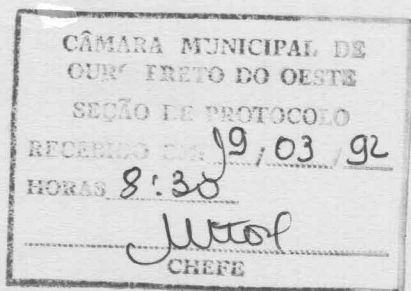 CÂMARA MUNICIPAL DE
OURO PRETO DO OESTE
SEÇÃO DE PROTOCOLO
RECEBIDO EM 19 / 03 / 92
HORAS 8:30
CHEFE